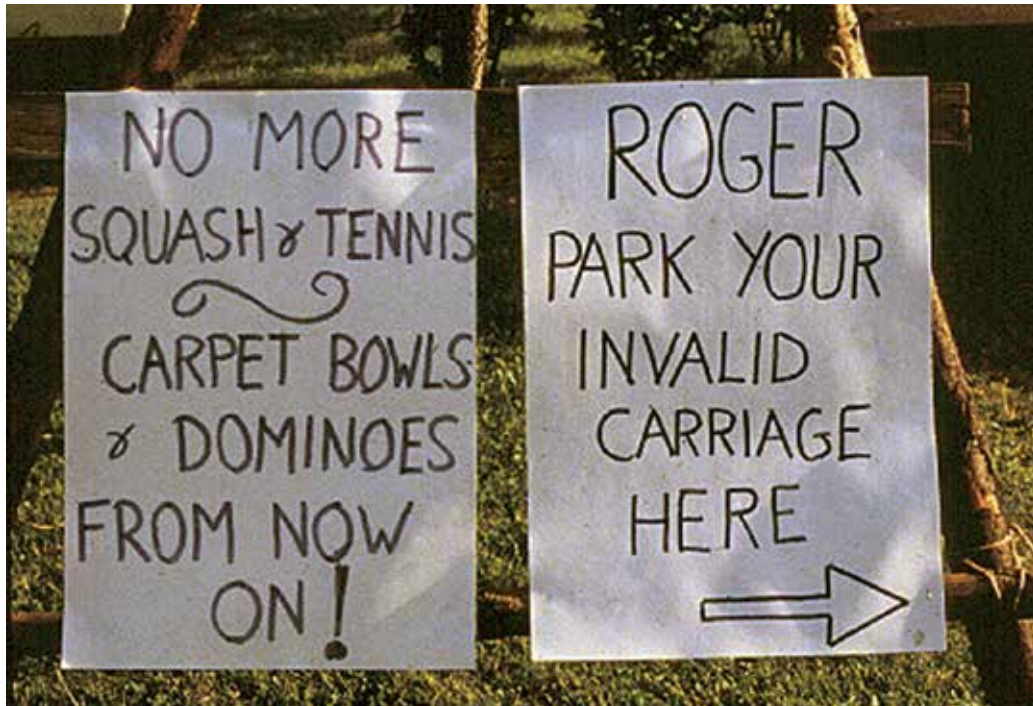 NO MORE
SQUASH & TENNIS
CARPET BOWLS
& DOMINOES
FROM NOW
ON!
ROGER
PARK YOUR
INVALID
CARRIAGE
HERE